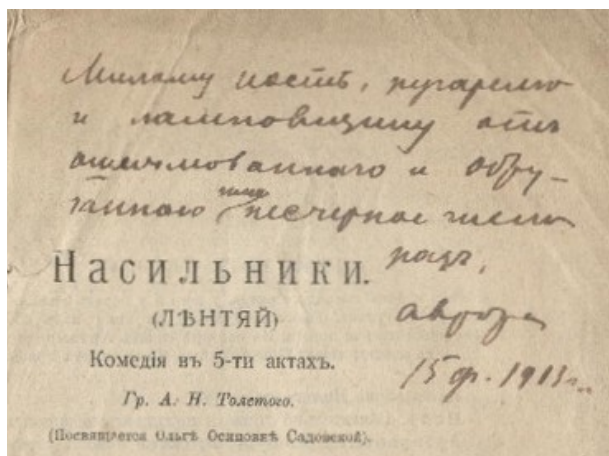 Милому Косте, пугарелю
и ламповщику отъ
ошельмованнаго и обру-
ганнаго несчерное число
разъ,
автора
15 ф. 1913 г.
Насильники.
(ЛѢНТЯЙ)
Комедія въ 5-ти актахъ.
Гр. А. Н. Толстого.
(Посвящается Ольгѣ Осиповнѣ Садовской).